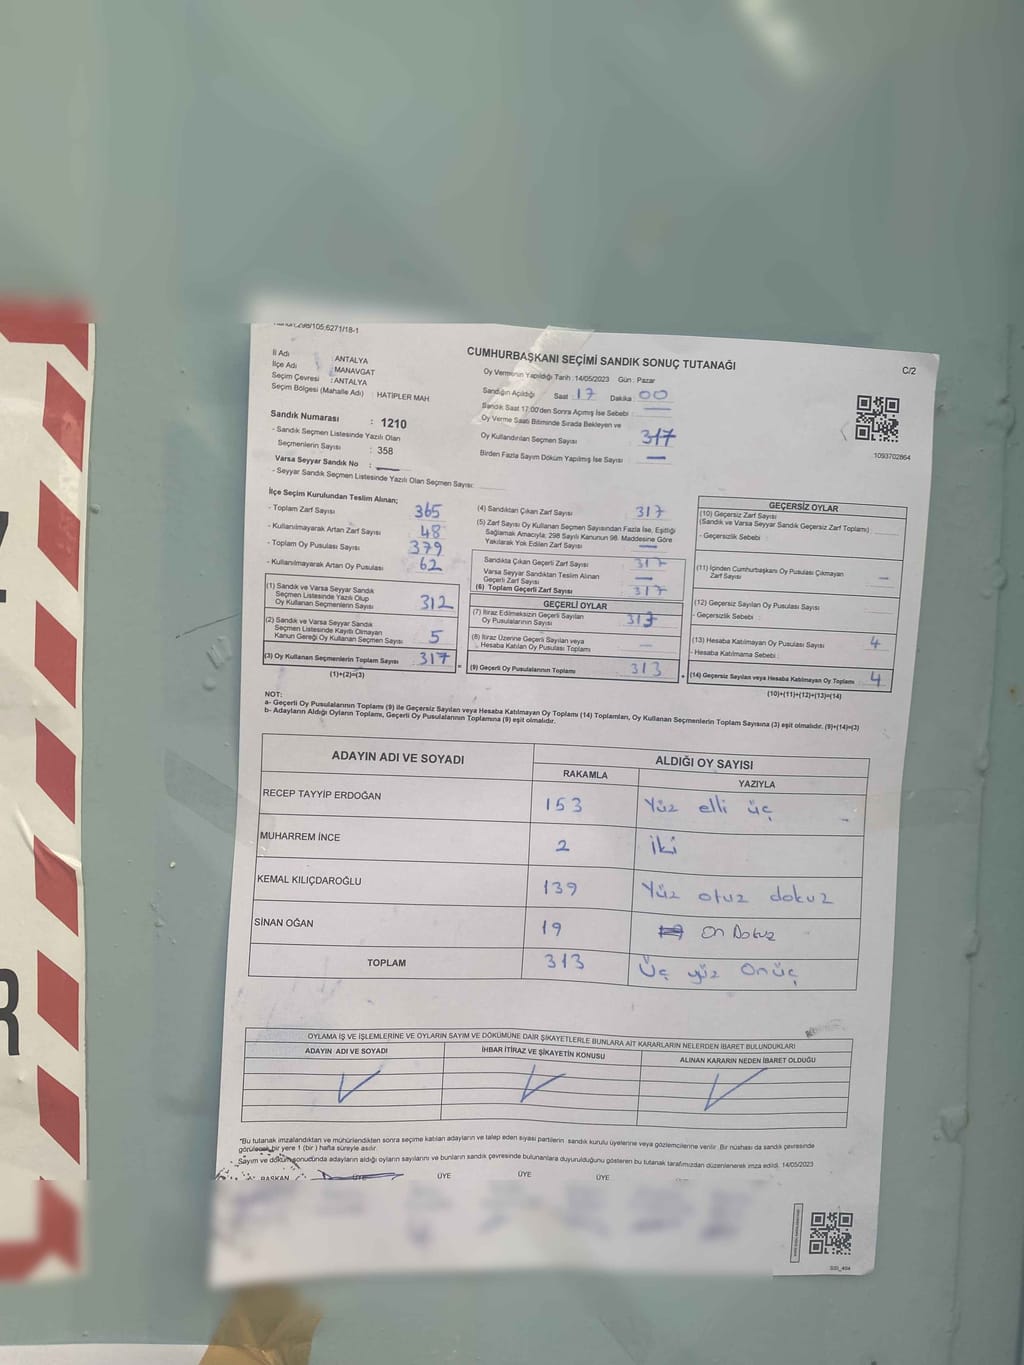 298/105;6271/18-1
CUMHURBAŞKANI SEÇİMİ SANDIK SONUÇ TUTANAĞI
C/2
İl Adı : ANTALYA
İlçe Adı : MANAVGAT
Seçim Çevresi : ANTALYA
Seçim Bölgesi (Mahalle Adı) : HATIPLER MAH
Sandık Numarası : 1210
- Sandık Seçmen Listesinde Yazılı Olan
Seçmenlerin Sayısı : 358
Varsa Seyyar Sandık No :
- Seyyar Sandık Seçmen Listesinde Yazılı Olan Seçmen Sayısı:
Oy Vermenin Yapıldığı Tarih :14/05/2023 Gün : Pazar
Sandığın Açıldığı Saat : 17 Dakika : 00
Sandık Saat 17:00'den Sonra Açmış İse Sebebi :
Oy Verme Saati Bitiminde Sırada Bekleyen ve
Oy Kullandırılan Seçmen Sayısı : 317
Birden Fazla Sayım Döküm Yapılmış İse Sayısı : —
1093702864
İlçe Seçim Kurulundan Teslim Alınan;
- Toplam Zarf Sayısı : 365
- Kullanılmayarak Artan Zarf Sayısı : 48
- Toplam Oy Pusulası Sayısı : 379
- Kullanılmayarak Artan Oy Pusulası : 62
(1) Sandık ve Varsa Seyyar Sandık
Seçmen Listesinde Yazılı Olup
Oy Kullanan Seçmenlerin Sayısı : 312
(2) Sandık ve Varsa Seyyar Sandık
Seçmen Listesinde Kayıtlı Olmayan
Kanun Gereği Oy Kullanan Seçmen Sayısı : 5
(3) Oy Kullanan Seçmenlerin Toplam Sayısı : 317
(1)+(2)=(3)
(4) Sandıktan Çıkan Zarf Sayısı : 317
(5) Zarf Sayısı Oy Kullanan Seçmen Sayısından Fazla İse, Eşitliği
Sağlamak Amacıyla; 298 Sayılı Kanunun 98. Maddesine Göre
Yakılarak Yok Edilen Zarf Sayısı : —
Sandıkta Çıkan Geçerli Zarf Sayısı : 317
Varsa Seyyar Sandıktan Teslim Alınan
Geçerli Zarf Sayısı : —
(6) Toplam Geçerli Zarf Sayısı : 317
GEÇERLİ OYLAR
(7) İtiraz Edilmeksizin Geçerli Sayılan
Oy Pusulalarının Sayısı : 313
(8) İtiraz Üzerine Geçerli Sayılan veya
Hesaba Katılan Oy Pusulası Toplamı : —
= (9) Geçerli Oy Pusulalarının Toplamı : 313
GEÇERSİZ OYLAR
(10) Geçersiz Zarf Sayısı
(Sandık ve Varsa Seyyar Sandık Geçersiz Zarf Toplamı)
- Geçersizlik Sebebi :
(11) İçinden Cumhurbaşkanı Oy Pusulası Çıkmayan
Zarf Sayısı : —
(12) Geçersiz Sayılan Oy Pusulası Sayısı :
- Geçersizlik Sebebi :
(13) Hesaba Katılmayan Oy Pusulası Sayısı : 4
- Hesaba Katılmama Sebebi :
+ (14) Geçersiz Sayılan veya Hesaba Katılmayan Oy Toplamı : 4
(10)+(11)+(12)+(13)=(14)
NOT:
a- Geçerli Oy Pusulalarının Toplamı (9) ile Geçersiz Sayılan veya Hesaba Katılmayan Oy Toplamı (14) Toplamları, Oy Kullanan Seçmenlerin Toplam Sayısına (3) eşit olmalıdır. (9)+(14)=(3)
b- Adayların Aldığı Oyların Toplamı, Geçerli Oy Pusulalarının Toplamına (9) eşit olmalıdır.
ADAYIN ADI VE SOYADI
ALDIĞI OY SAYISI
RAKAMLA YAZIYLA
RECEP TAYYİP ERDOĞAN 153 Yüz elli üç
MUHARREM İNCE 2 iki
KEMAL KILIÇDAROĞLU 139 Yüz otuz dokuz
SİNAN OĞAN 19 On Dokuz
TOPLAM 313 Üç yüz Onüç
OYLAMA İŞ VE İŞLEMLERİNE VE OYLARIN SAYIM VE DÖKÜMÜNE DAİR ŞİKAYETLERLE BUNLARA AİT KARARLARIN NELERDEN İBARET BULUNDUKLARI
ADAYIN ADI VE SOYADI İHBAR İTİRAZ VE ŞİKAYETİN KONUSU ALINAN KARARIN NEDEN İBARET OLDUĞU
*Bu tutanak imzalandıktan ve mühürlendikten sonra seçime katılan adayların ve talep eden siyasi partilerin sandık kurulu üyelerine veya gözlemcilerine verilir. Bir nüshası da sandık çevresinde
görülecek bir yere 1 (bir) hafta süreyle asılır.
Sayım ve döküm sonucunda adayların aldığı oyların sayılarını ve bunların sandık çevresinde bulunanlara duyurulduğunu gösteren bu tutanak tarafımızdan düzenlenerek imza edildi. 14/05/2023
BAŞKAN ÜYE ÜYE ÜYE ÜYE
SSI_404
R